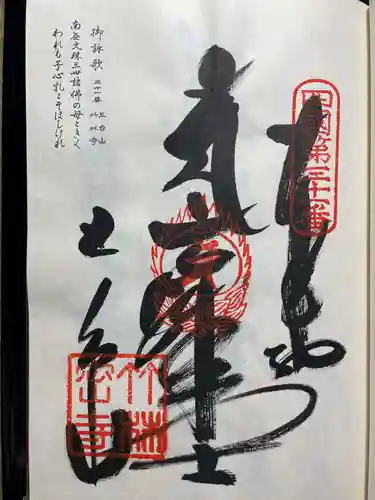 四國第三十一番
奉納
文殊大士
竹林密寺
御詠歌 三十一番 五台山 竹林寺
南無文珠三世諸佛の母ときく
われも子心乳こそほしけれ